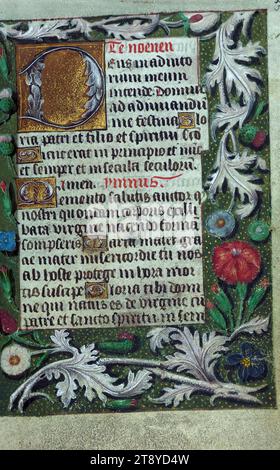 Te noenen
Deus in adiuto
rium meum
intende Domine
ad adiuuandū
me festina Glo
ria patri et filio et spiritui sco
Sicut erat in principio et nūc
et semper et in secula seculorū
Amen. ymnus.
Memento salutis auctor q
nostri quondam corporis ex illi
bata virgine nascendo formā
sumpseris Maria mater gracie
mater misericordie tu nos
ab hoste protege in hora mor
tis suscipe Gloria tibi domi
ne qui natus es de virgine cū
patre et sancto spiritu in sem
alamy
Image ID: 2T8YD4W
www.alamy.com